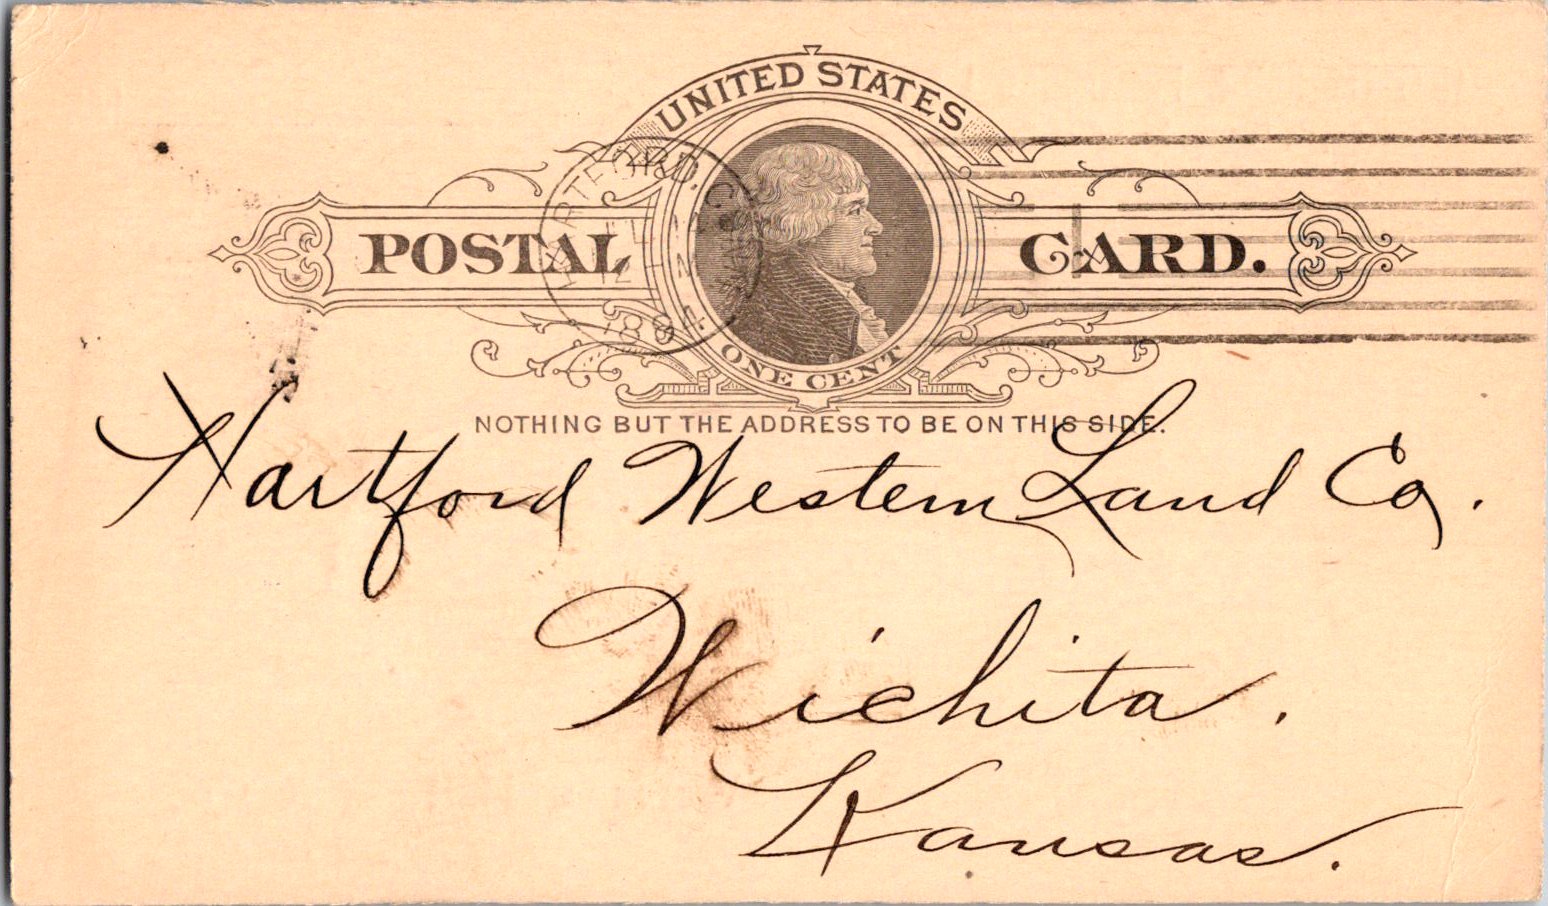 UNITED STATES
POSTAL CARD.
HARTFORD, CONN.
ONE CENT
NOTHING BUT THE ADDRESS TO BE ON THIS SIDE.
Hartford Western Land Co.
Wichita.
Kansas.